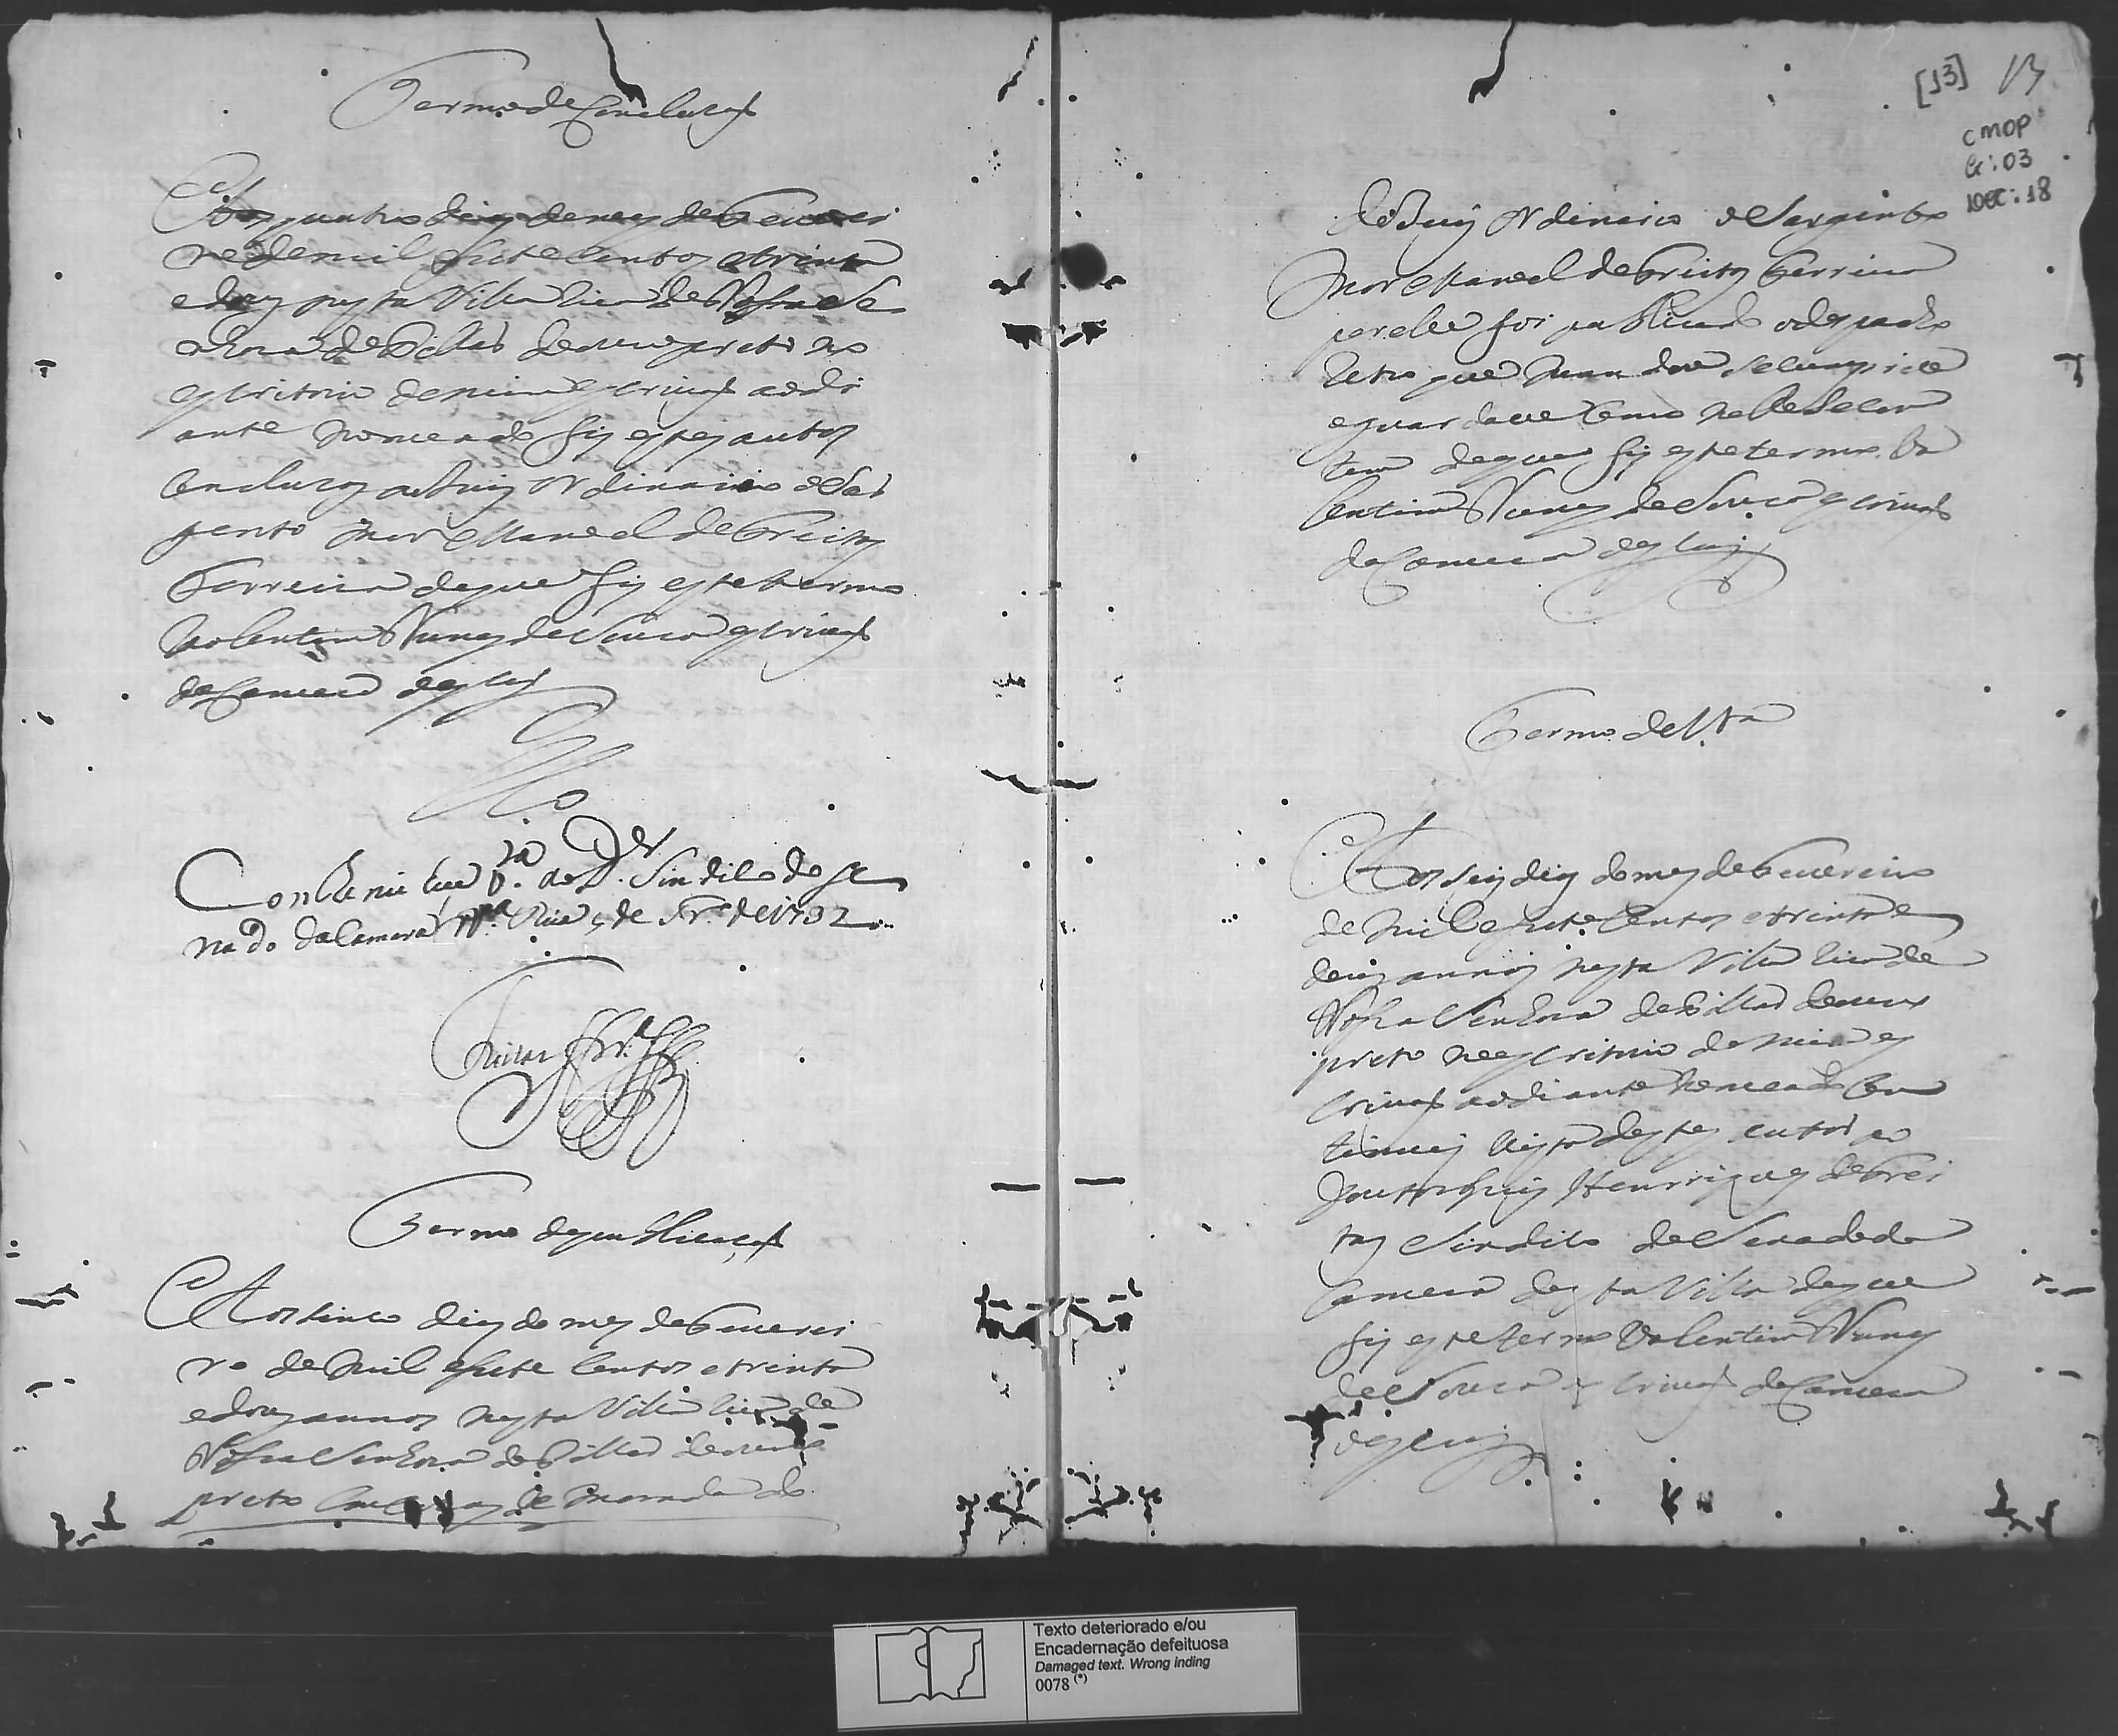 Termo de Concluzaõ
Aos quatro dias do mes de Feverei
ro de mil e sete Centos e trinta
e dous nesta Villa Rica de Nossa Se
nhora do Pillar do ouro preto no
escritorio de mim escrivaõ aodi
ante nomeado fis estes autos
Concluzos ao Juis Ordinario o Sar
gento mor Manoel de Freitas
Ferreira de que fis este termo
Valentim Nunes de Souza escrivaõ
da Camera o escrevi
Continue Va. ao Dr. Sindico do Se
nado da Camera Va. Rica 5 de Fro. de 1732
Termo de publicaçaõ
Aos sinco dias do mes de Feverei
ro de mil e sete Centos e trinta
e dous annos nesta Villa Rica de
Nossa Senhora do Pillar do ouro
preto em Cazas de morada do
[13] 13
CMOP
Cx: 03
DOC: 18
do Juis Ordinario o Sargento
mor Manoel de Freitas Ferreira
por elle foi publicado o despacho
Retro que mandou se cumprice
e guardace Como nelle se Con
tem de que fis este termo Va
lentim Nunes de Souza escrivaõ
da Camera o escrevi
Termo de Va.
Aos seis dias do mes de Fevereiro
de mil e sete Centos e trinta e
dous annos nesta Villa Rica de
Nossa Senhora do Pillar do ouro
preto no escritorio de mim es
crivaõ aodiante nomeado Con
tinuei vista destes autos ao
Doutor Luis Henriques de Frei
tas Sindico do Senado da
Camera desta Villa de que
fis este termo Valentim Nunes
de Souza escrivaõ da Camera
o escrevi
Texto deteriorado e/ou
Encadernação defeituosa
Damaged text. Wrong inding
0078 (*)